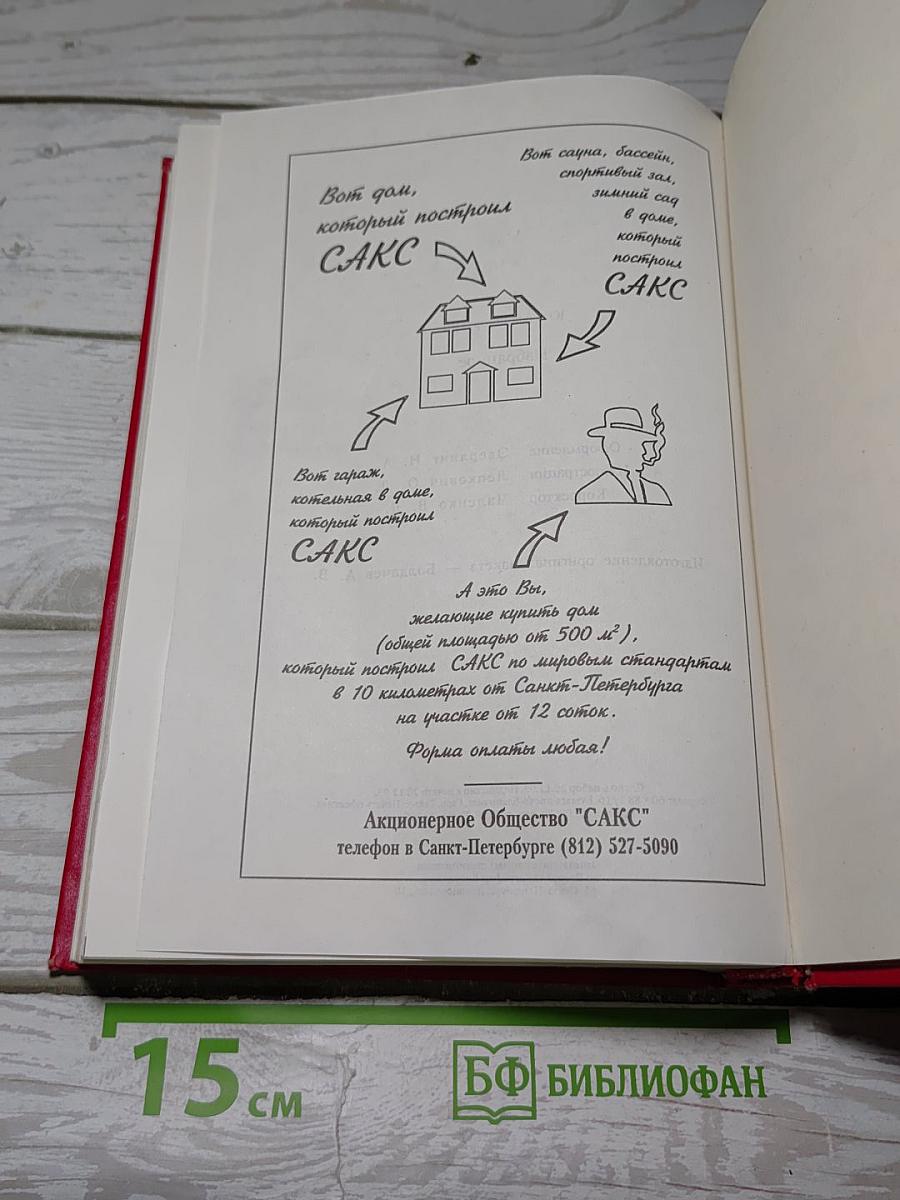 Вот дом,
который построил
САКС
Вот сауна, бассейн,
спортивый зал,
зимний сад
в доме,
который
построил
САКС
Вот гараж,
котельная в доме,
который построил
САКС
А это Вы,
желающие купить дом
(общей площадью от 500 м²),
который построил САКС по мировым стандартам
в 10 километрах от Санкт-Петербурга
на участке от 12 соток.
Форма оплаты любая!
Акционерное Общество "САКС"
телефон в Санкт-Петербурге (812) 527-5090
15 см
БФ БИБЛИОФАН